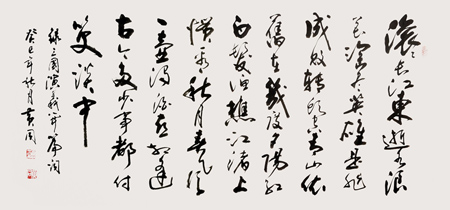 滚滚长江東逝水浪
花淘盡英雄是非
成敗轉頭空青山依
舊在幾度夕陽紅
白髮漁樵江渚上
慣看秋月春風
一壺濁酒喜相逢
古今多少事都付
笑談中
錄三國演義開篇詞
癸巳年秋月黄